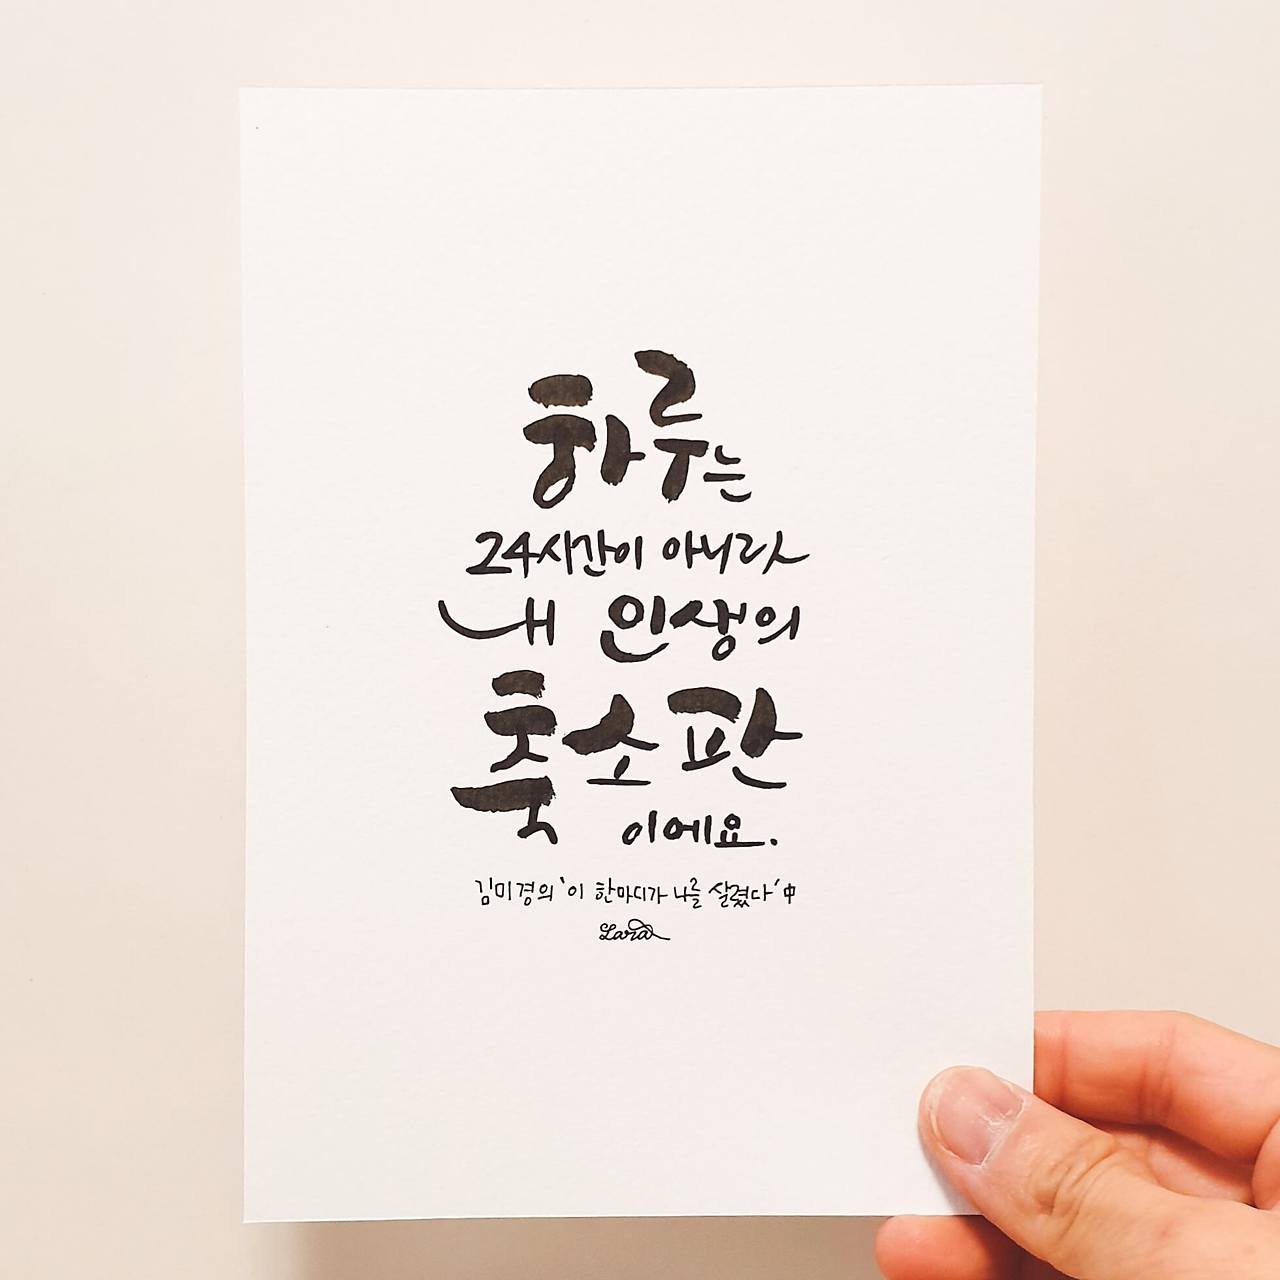 하루는
24시간이 아니라
내 인생의
축소판
이에요.
김미경의 '이 한마디가 나를 살렸다' 中
Lara